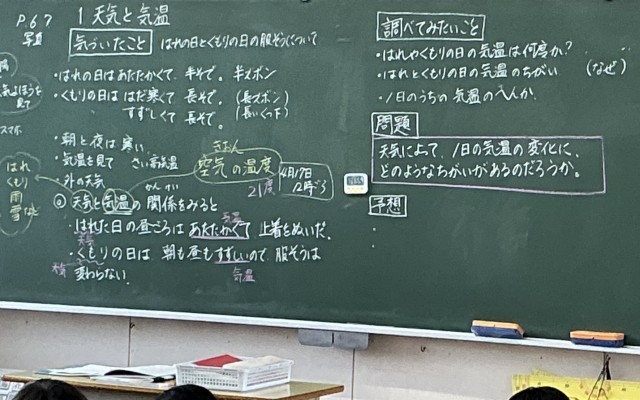 P.67
写真
1 天気と気温
気づいたこと はれの日とくもりの日の服そうについて
・はれの日はあたたかくて、半そで。半ズボン
・くもりの日は はだ寒くて 長そで。(長ズボン)
すずしくて 長そで。(長いくつ下)
・朝と夜は寒い。
・気温を見て さい高気温
・外の天気
きおん
空気の温度
21度
4月17日
12時ごろ
はれ
くもり
雨
雪など
スマホ
かんけい
◎ 天気と気温の関係をみると
・はれた日の昼ごろは あたたかくて 上着をぬいだ。
気温
天気
・くもりの日は 朝も昼もすずしいので 服そうは
気温
変わらない。
調べてみたいこと
・はれやくもりの日の気温は何度か?
・はれとくもりの日の気温のちがい (なぜ)
・1日のうちの気温のへんか
問題
天気によって、1日の気温の変化に、
どのようなちがいがあるのだろうか。
予想
・
・